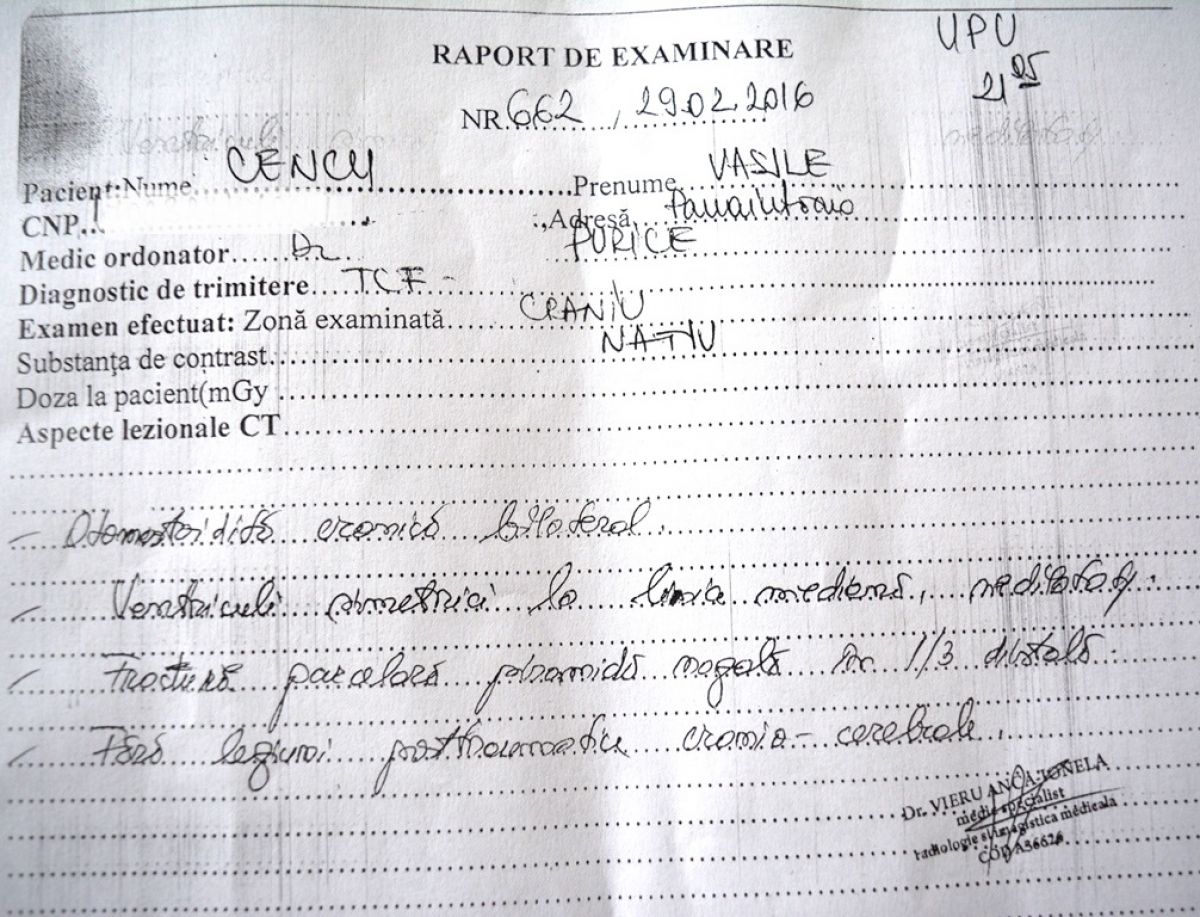 UPU
RAPORT DE EXAMINARE
21 05
NR.662, 29.02.2016
Pacient:Nume CENCU Prenume VASILE
CNP Adresă
Medic ordonator Dr PURICE
Diagnostic de trimitere TCF -
Examen efectuat: Zonă examinată CRANIU
NATIV
Substanţa de contrast
Doza la pacient(mGy
Aspecte lezionale CT
- Otomastoidită cronică bilateral.
- Ventriculi simetrici la linia mediană, nedilatați.
- Fractură parcelară piramidă nazală în 1/3 distală.
- Fără leziuni posttraumatice cranio-cerebrale.
Dr. VIERU ANCA-IONELA
medic specialist
radiologie si imagistica medicala
COD A36626